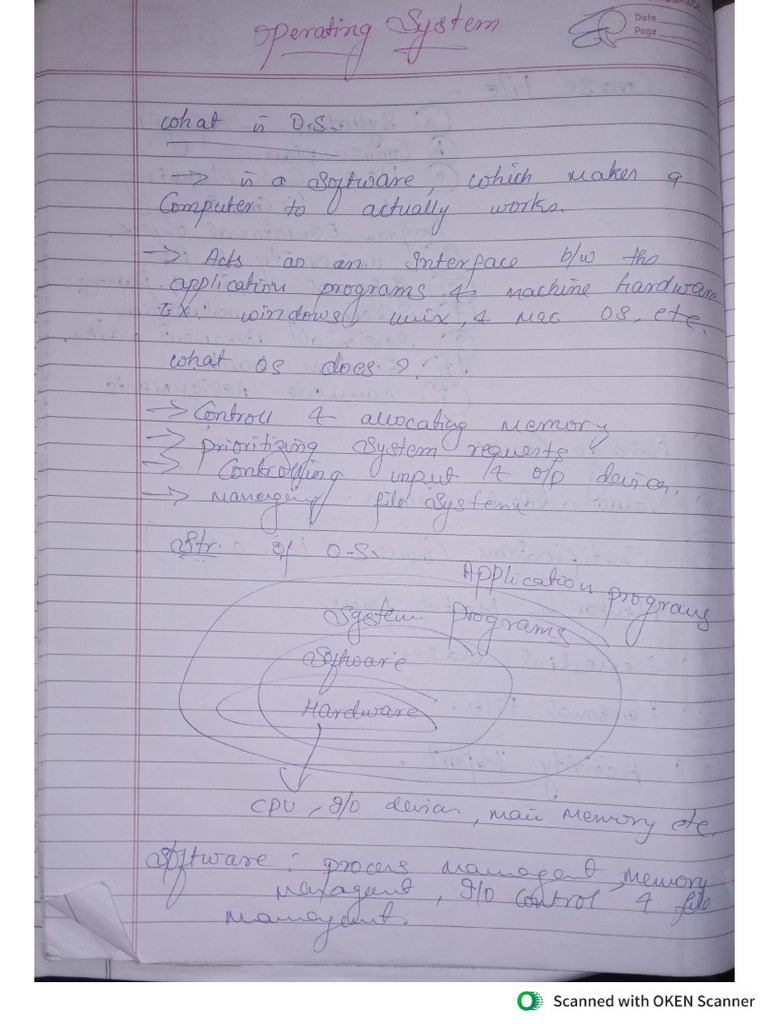 Operating System
Date
Page
What is O.S.
→ is a Software, which makes a
Computer to actually works.
→ Acts as an Interface b/w the
application programs & machine hardware
Ex: windows, unix, & Mac OS, etc.
What OS does?
→ Controll & allocating memory
→ Prioritizing System requests
→ Controlling input & o/p devices.
→ Managing file Systems
Str. of O.S.
Application programs
System programs
Software
Hardware
CPU, I/O devices, main memory etc.
Software: process managent, memory
managent, I/O control & file
managents
Scanned with OKEN Scanner